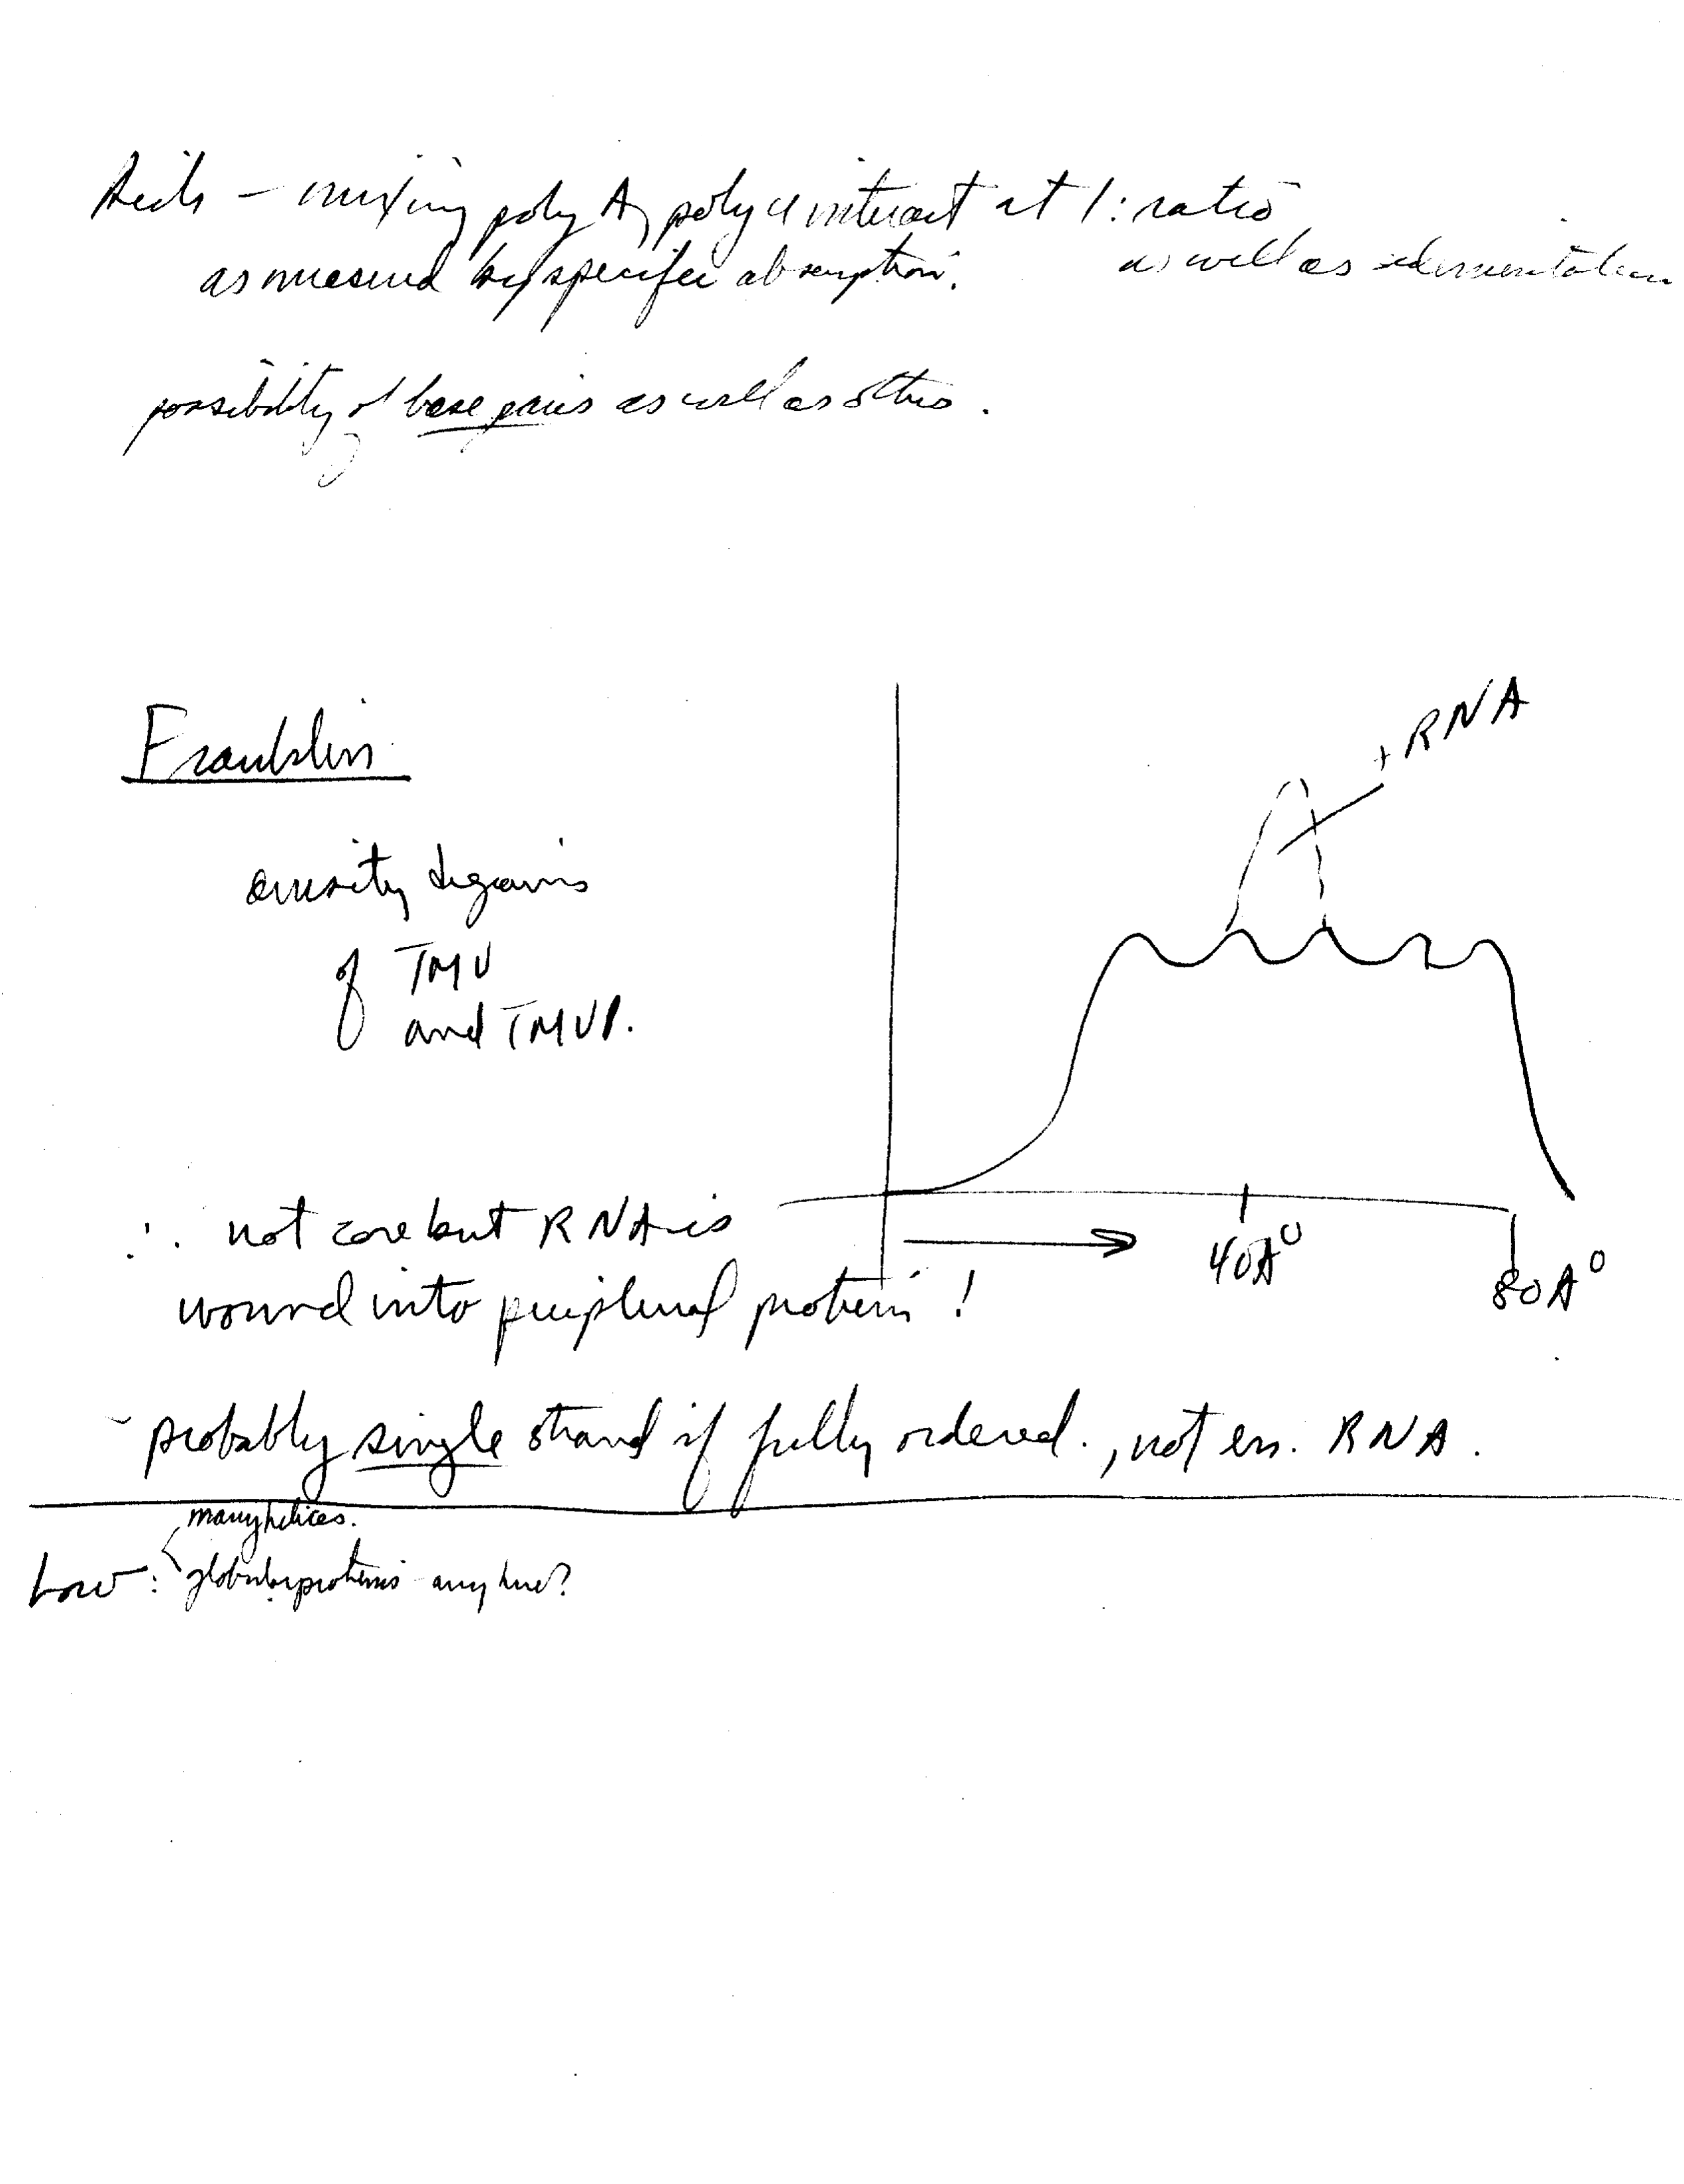 – mixing poly A, poly U interact at 1: ratio
as measured by specific absorption. as well as sedimentation
possibility of base pairs as well as others.
Franklin
density diagrams
of TMV
and TMVP.
+ RNA
40A°
80A°
∴ not core but RNA is
wound into peripheral protein!
- probably single strand if fully ordered., not in. RNA.
many helices.
Low: globular proteins - any here?